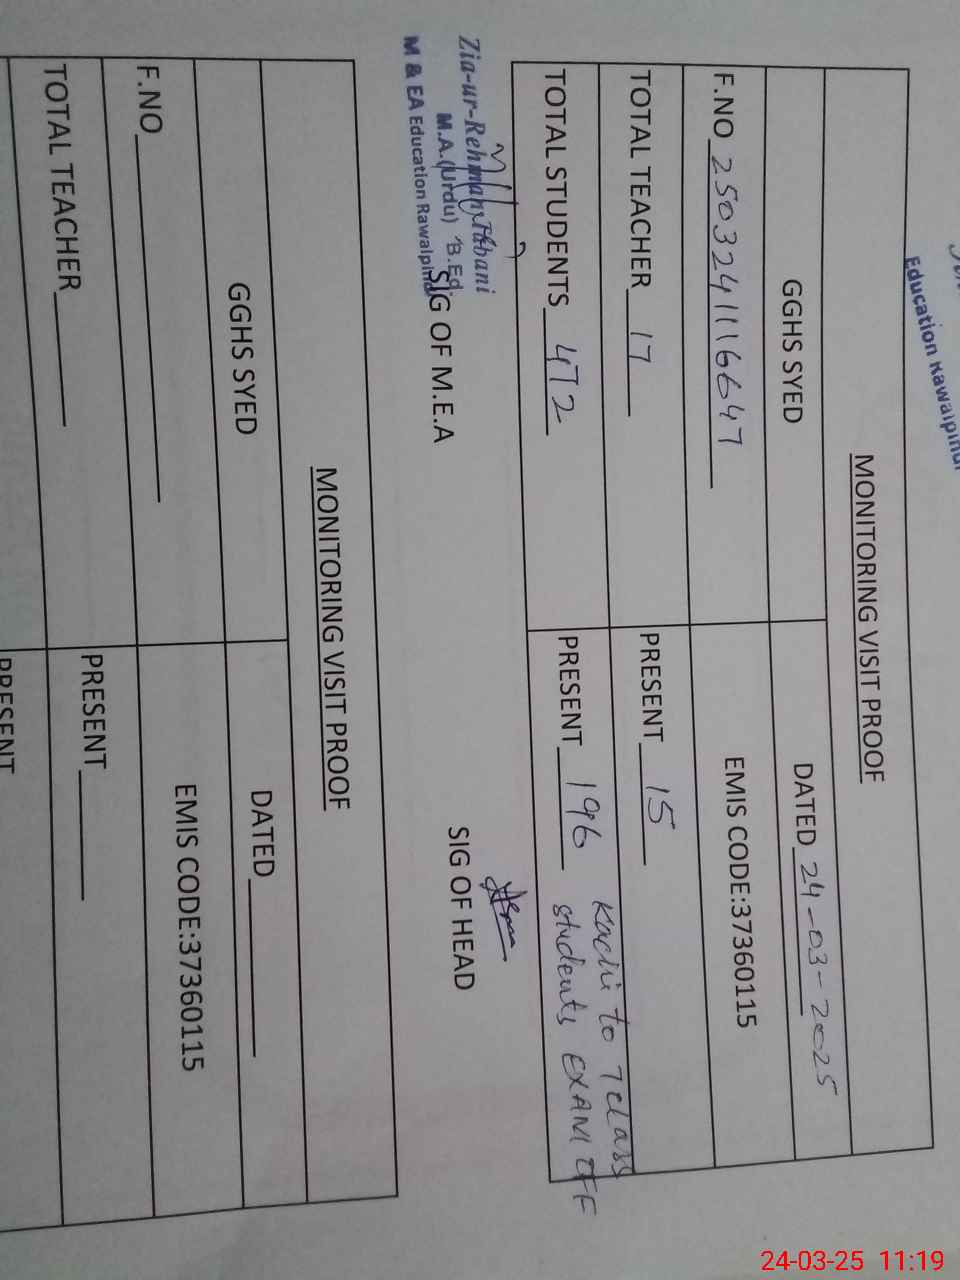 Education Rawalpindi
MONITORING VISIT PROOF
GGHS SYED DATED 24-03-2025
F.NO 2503241116647 EMIS CODE:37360115
TOTAL TEACHER 17 PRESENT 15
TOTAL STUDENTS 472 PRESENT 196 Kachi to 7 class
students EXAM OFF
Zia-ur-Rehman
M.A.(Urdu) B.Ed.
M & EA Education Rawalpindi
SIG OF M.E.A SIG OF HEAD
MONITORING VISIT PROOF
GGHS SYED DATED
F.NO EMIS CODE:37360115
TOTAL TEACHER PRESENT
PRESENT
24-03-25 11:19